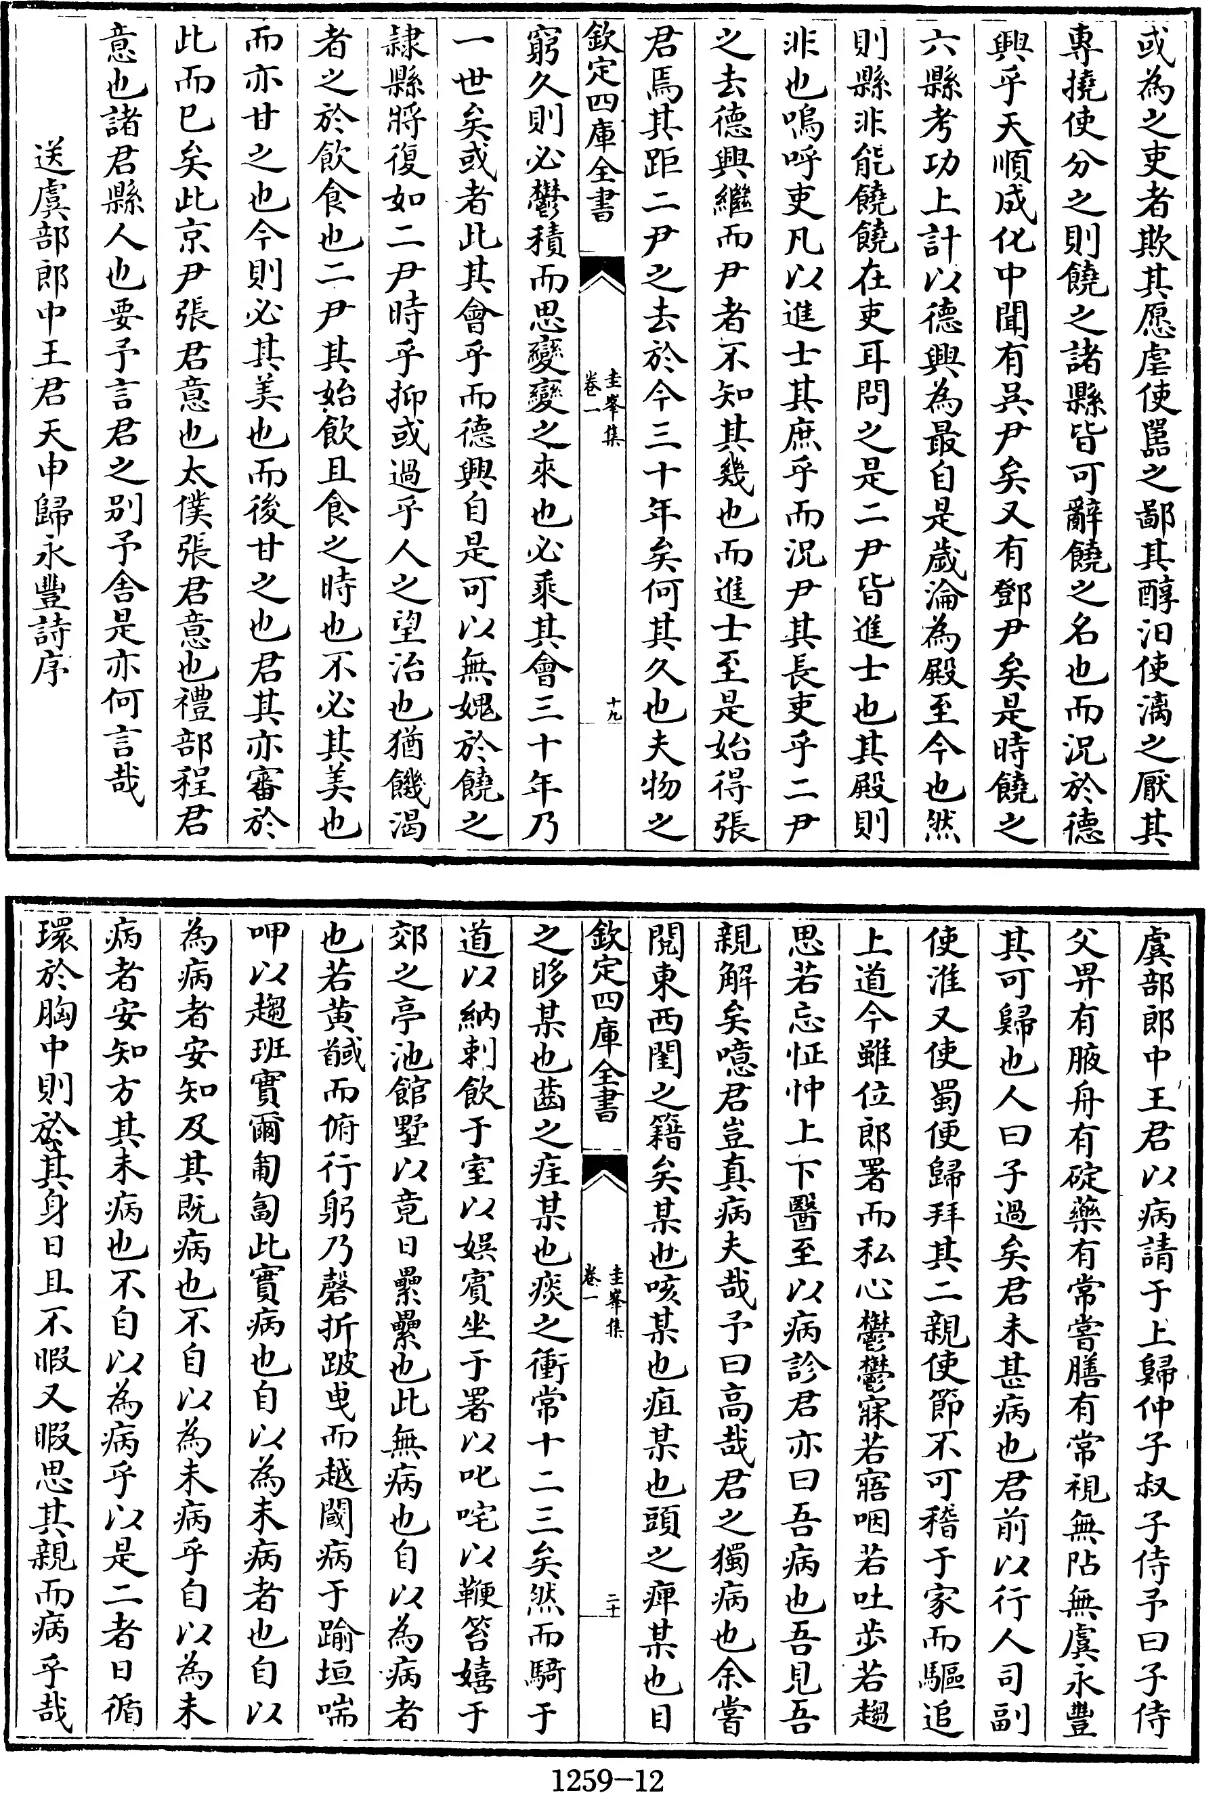 或為之吏者欺其愿虐使嚚之鄙其醇汨使漓之厭其
專撓使分之則饒之諸縣皆可辭饒之名也而況於德
興乎天順成化中聞有吳尹矣又有鄧尹矣是時饒之
六縣考功上計以德興為最自是歲淪為殿至今也然
則縣非能饒饒在吏耳問之是二尹皆進士也其殿則
非也嗚呼吏凡以進士其庶乎而況尹其長吏乎二尹
之去德興繼而尹者不知其幾也而進士至是始得張
君焉其距二尹之去於今三十年矣何其久也夫物之
欽定四庫全書
圭峯集
卷一
十九
窮久則必鬱積而思變變之來也必乘其會三十年乃
一世矣或者此其會乎而德興自是可以無媿於饒之
隷縣將復如二尹時乎抑或過乎人之望治也猶饑渴
者之於飲食也二尹其始飲且食之時也不必其美也
而亦甘之也今則必其美也而後甘之也君其亦審於
此而已矣此京尹張君意也太僕張君意也禮部程君
意也諸君縣人也要予言君之别予舍是亦何言哉
送虞部郎中王君天申歸永豐詩序
虞部郎中王君以病請于上歸仲子叔子侍予曰子侍
父畀有腋舟有碇藥有常嘗膳有常視無阽無虞永豐
其可歸也人曰子過矣君未甚病也君前以行人司副
使淮又使蜀便歸拜其二親使節不可稽于家而驅追
上道今雖位郎署而私心鬱鬱寐若寤咽若吐步若趨
思若忘怔忡上下醫至以病診君亦曰吾病也吾見吾
親解矣噫君豈真病夫哉予曰高哉君之獨病也余嘗
閱東西闈之籍矣某也咳某也疽某也頭之痺某也目
欽定四庫全書
圭峯集
卷一
二十
之眵某也齒之疰某也痰之衝常十二三矣然而騎于
道以納刺飲于室以娯賓坐于署以叱咤以鞭笞嬉于
郊之亭池館墅以竟日纍纍也此無病也自以為病者
也若黄馘而俯行躬乃磬折跛曳而越閾病于踰垣喘
呷以趨班實爾匍匐此實病也自以為未病者也自以
為病者安知及其既病也不自以為未病乎自以為未
病者安知方其未病也不自以為病乎以是二者日循
環於胸中則於其身日且不暇又暇思其親而病乎哉
1259-12